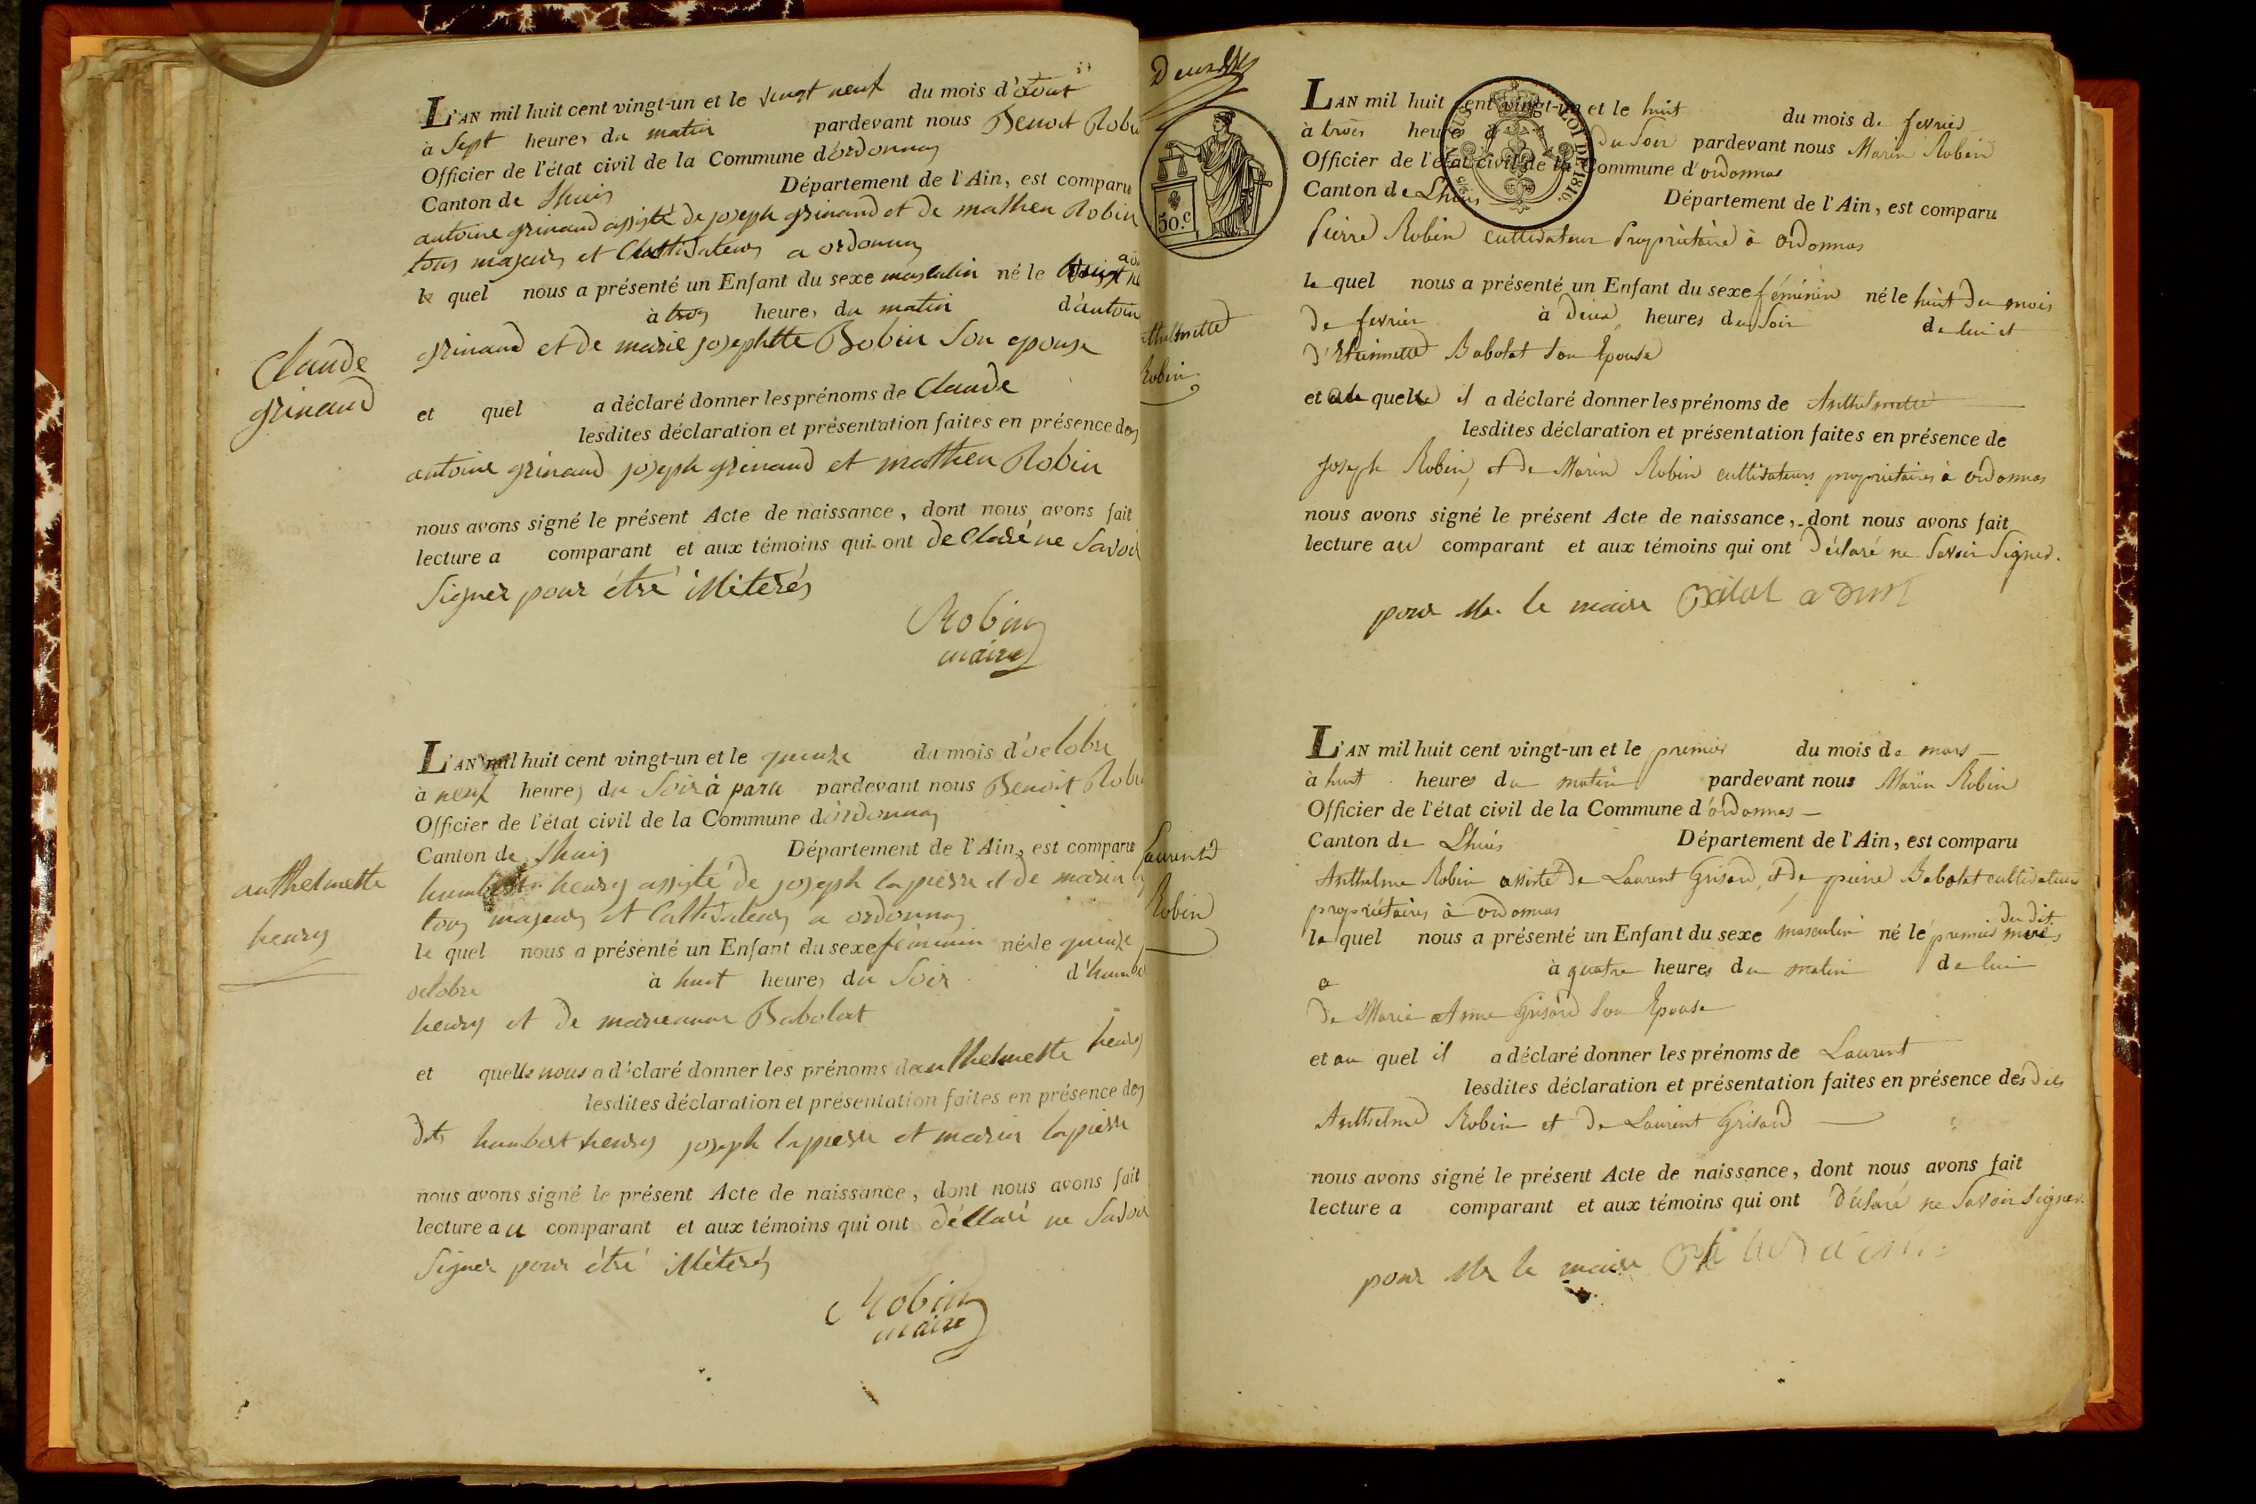 L'AN mil huit cent vingt-un et le vingt neuf du mois d'aout
à Sept heures du matin pardevant nous Benoit Robin
Officier de l'état civil de la Commune d'ordonnas
Canton de Lhuis Département de l'Ain, est comparu
antoine grinand assisté de joseph grinand et de mathieu Robin
tous majeurs et Cultivateurs a ordonnas
le quel nous a présenté un Enfant du sexe masculin né le
à trois heures du matin d'antoin
grinand et de marie josephtte Bobin Son epouse
Claude
grinand
et quel a déclaré donner les prénoms de Claude
lesdites déclaration et présentation faites en présence des
antoine grinand joseph grinand et mathieu Robin
nous avons signé le présent Acte de naissance, dont nous avons fait
lecture a comparant et aux témoins qui ont declaré ne Savoir
Signer pour étré illiterés
Robin
maire
L'AN mil huit cent vingt-un et le quinze du mois d'octobre
à neuf heures du Soir à paru pardevant nous Benoit Robin
Officier de l'état civil de la Commune d'ordonnas
Canton de Lhuis Département de l'Ain, est comparu
humbert henry assisté de joseph lapierre et de marin
tous majeurs et Cultivateurs a ordonnas
anthelmette
henry
le quel nous a présenté un Enfant du sexe féminin né le quinze
octobre à huit heures du Soir d'humbe
henry et de marieanne Babolat
et quelle nous a déclaré donner les prénoms de anthelmette henry
lesdites déclaration et présentation faites en présence des
dits humbert henry joseph lapierre et marin lapierre
nous avons signé le présent Acte de naissance, dont nous avons fait
lecture au comparant et aux témoins qui ont déclaré ne Savoir
Signer pour étré illiterés
Robin
maire
LOI DE 1816.
50.c
L'AN mil huit cent vingt-un et le huit du mois de fevrier
à trois heures du Soir pardevant nous Marin Robin
Officier de l'état civil de la Commune d'ordonnas
Canton de Lhuis Département de l'Ain, est comparu
Pierre Robin cultivateur Propriétaire à ordonnas
le quel nous a présenté un Enfant du sexe féminin né le huit du mois
de fevrier à deux heures du Soir de lui et
d'Etiennette Babolat Son Epouse
thelmette
Robin
et quelle il a déclaré donner les prénoms de Anthelmette
lesdites déclaration et présentation faites en présence de
Joseph Robin, et de Marin Robin cultivateurs propriétaires à ordonnas
nous avons signé le présent Acte de naissance, dont nous avons fait
lecture au comparant et aux témoins qui ont déclaré ne Savoir Signer.
pour Mr. le maire
L'AN mil huit cent vingt-un et le premier du mois de mars
à huit heures du matin pardevant nous Marin Robin
Officier de l'état civil de la Commune d'ordonnas
Canton de Lhuis Département de l'Ain, est comparu
Laurent
Robin
Anthelme Robin assisté de Laurent Grisard, et de pierre Babolat cultivateurs
propriétaires à ordonnas
le quel nous a présenté un Enfant du sexe masculin né le premier du dit mars
à quatre heures du matin de lui
de Marie Anne Grisard Son Epouse
et au quel il a déclaré donner les prénoms de Laurent
lesdites déclaration et présentation faites en présence desdits
Anthelme Robin et de Laurent Grisard
nous avons signé le présent Acte de naissance, dont nous avons fait
lecture a comparant et aux témoins qui ont déclaré ne Savoir Signer.
pour Mr le maire